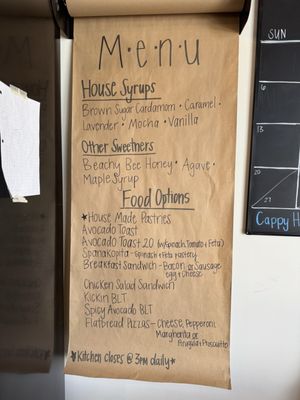 M·e·n·u
House Syrups
Brown Sugar Cardamom · Caramel ·
Lavender · Mocha · Vanilla
Other Sweetners
Beachy Bee Honey · Agave ·
Maple Syrup
Food Options
*House Made Pastries
Avocado Toast
Avocado Toast 2.0 (w/Spinach, Tomato & Feta)
Spanakopita - Spinach & Feta Pastery
Breakfast Sandwich - Bacon or Sausage
egg & Cheese
Chicken Salad Sandwich
Kickin BLT
Spicy Avocado BLT
Flatbread Pizzas - Cheese, Pepperoni,
Margherita or
Arugula & Prosciutto
*Kitchen closes @ 3PM daily*
SUN
6
13
20
27
Cappy H